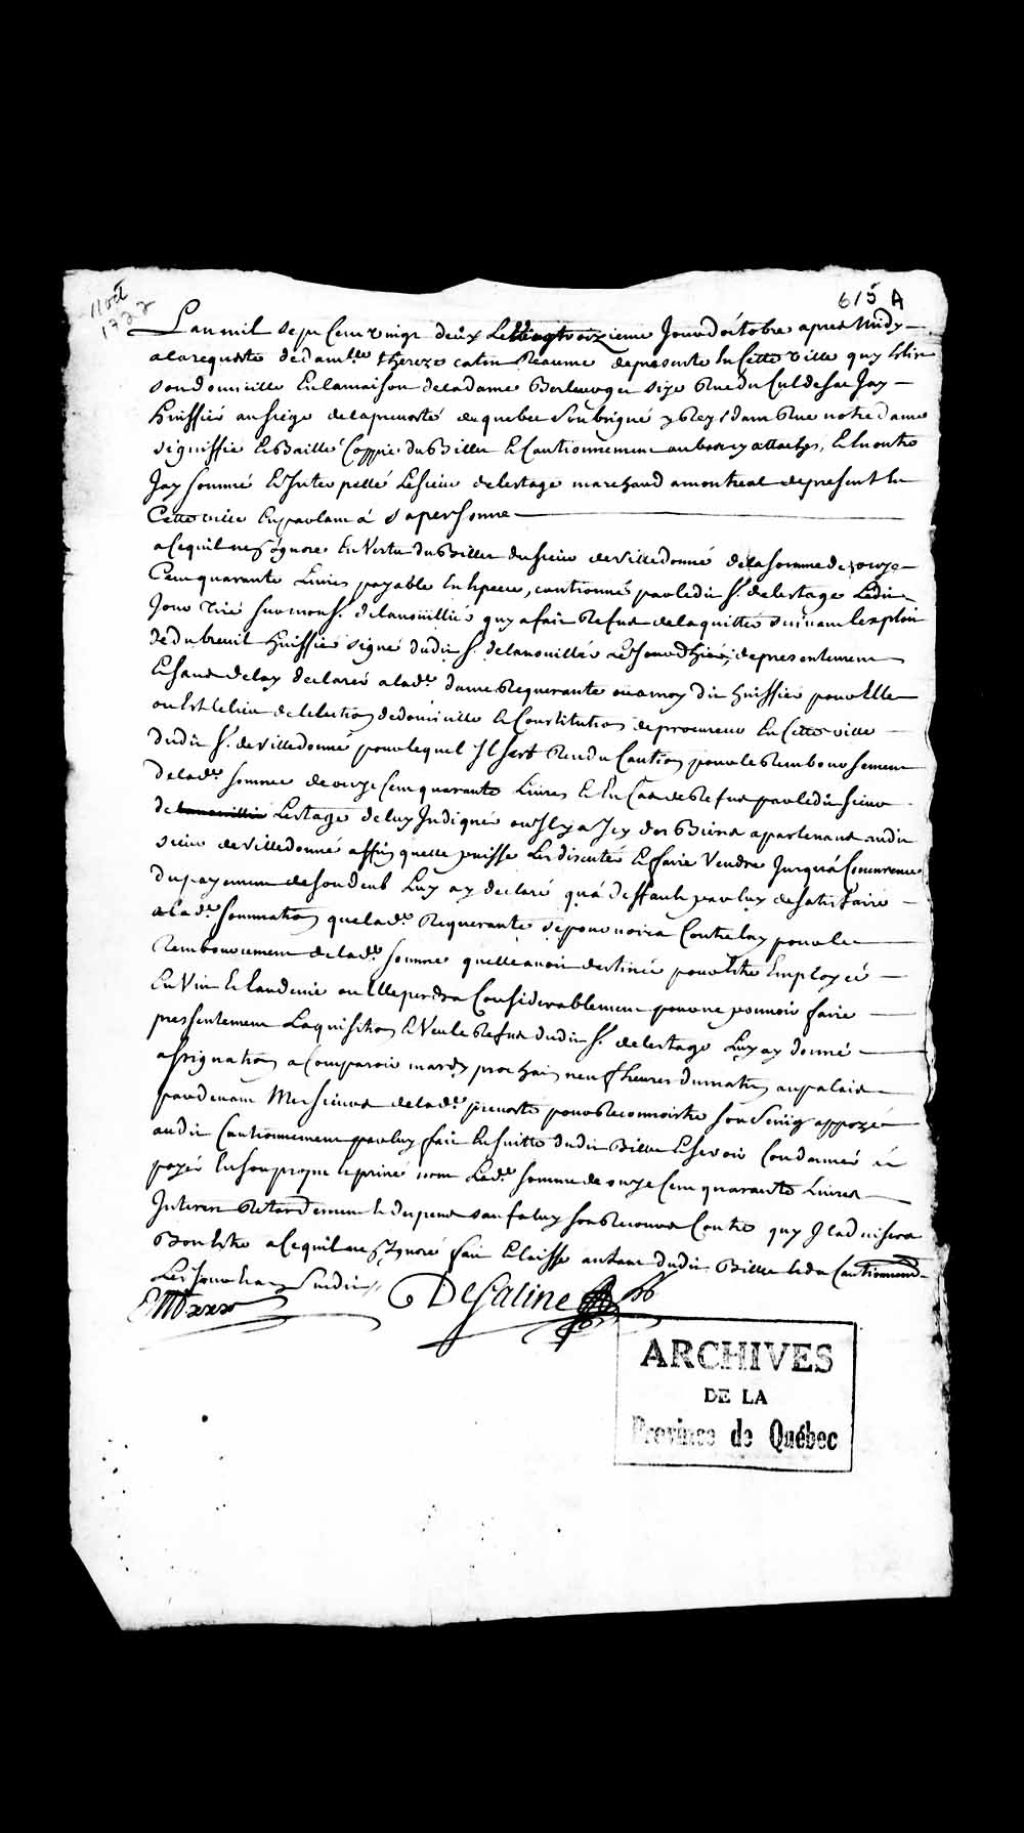 11 oct
1722
615 A
Lan mil sept Cent vingt deux Le vingt troizieme Jour doctobre apres Midy
a la requeste de dam.lle thereze catin Reaume de presente En Cette ville quy Eslit
son domicille En la maison de la dame Berluoge size Rue du Cul de Sac Jay
Huissier au siege de la prevosté de quebec Soubsigné y Resid.t Rue notre dame
signiffié Et Baillé Coppie du Billet Et Cautionnement au bas cy attachez, Et En outre
Jay sommé Et Interpellé Le sieur de lestage marchand a montreal de present En
Cette ville En parlant á sa personne
a Ce quil nen Ignore En Vertu du Billet du sieur de Villedonné de la somme de onze
Cent quarante Livres payable En Espece, cautionné par ledit S.r de lestage Ledit
Jour Tiré sur mons.r de lanoüillier quy a fait Refus de laquitter suivant lexploit
de dubreuil Huissier signé dudit S.r de lanouillier Le Jour dhier, de presentement
Et sans delay declarer a lad.e dame Requerante ou a moy dit huissier pour Elle
ou Est le lieu de lElection de domicille Et Constitution de procureur En Cette ville
dudit S.r de villedonné pour lequel Il sest Rendu Caution pour le Remboursement
de lad.e somme de onze Cent quarante Livres Et En Cas de Refus par ledit sieur
de lanouillier Lestage de luy Indiquer ou Il y a Icy des Biens apartenans audit
sieur de villedonné affin quelle puisse Les discuter Et faire Vendre Jusquá Concurrence
du payement de son deub Luy ay declaré quá deffault par luy de satisfaire
a lad.e sommation que lad.e Requerante se pourvoira Contre luy pour le
Remboursement de lad.e somme quelle avoit destinée pour Estre Employée
En Vin Et Eau de vie ou Elle perdra Considerablement pour ne pouvoir faire
pressentement Laquisition Et Veu le Refus dudit S.r de lestage Luy ay donné
assignation a Comparoir mardy prochain neuf heures du matin au palais
pardevant Messieurs de lad.e prevosté pour Reconnoistre son Seing apposé
audit Cautionnement par luy fait En suitte dudit Billet Et se voir Condamner á
payer En son propre Et privé nom Lad.e somme de onze Cent quarante Livres
Interest Retardement Et depens sauf a luy son Recours Contre quy Il advisera
Bon Estre a Ce quil nen Ignore fait Et laissé autant dudit Billet Et du Cautionnem.t
Les Jour Et an Susdit
DeSaline
ARCHIVES
DE LA
Province de Québec